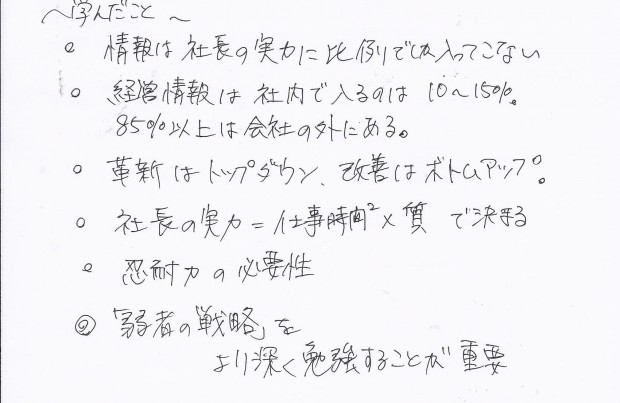 〜学んだこと〜
○ 情報は社長の実力に比例でしか入ってこない
○ 経営情報は社内で入るのは10〜15%。
85%以上は会社の外にある。
○ 革新はトップダウン、改善はボトムアップ。
○ 社長の実力=仕事時間²×質 で決まる
○ 忍耐力の必要性
◎ 「弱者の戦略」を
より深く勉強することが重要